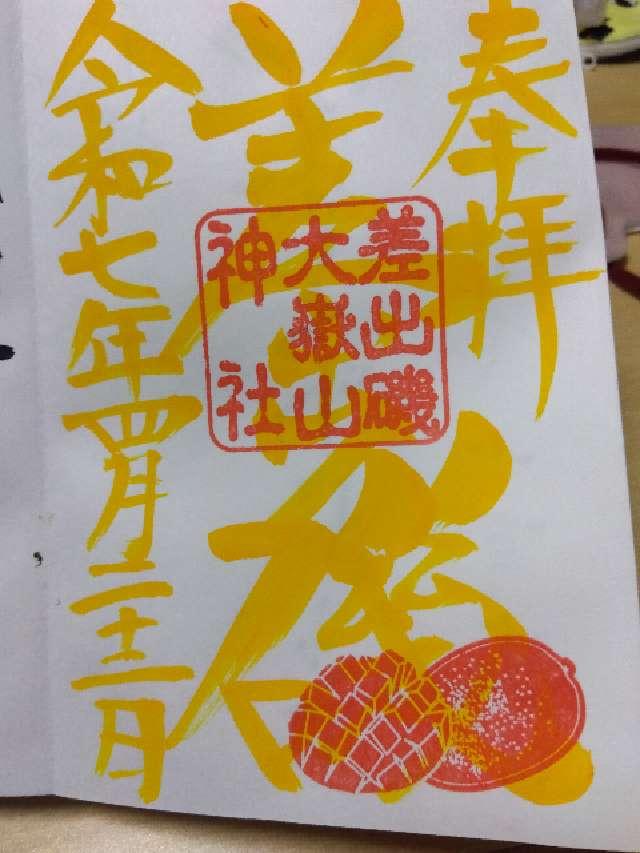 奉拝
差出磯
大嶽山
神社
令和七年四月二十二日